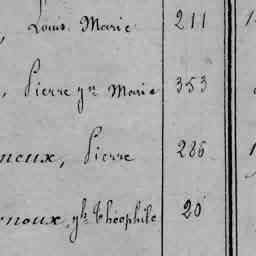 , Louis Marie 211
, Pierre yn Marie 353
neux, Pierre 286
noux, yh Théophile 20